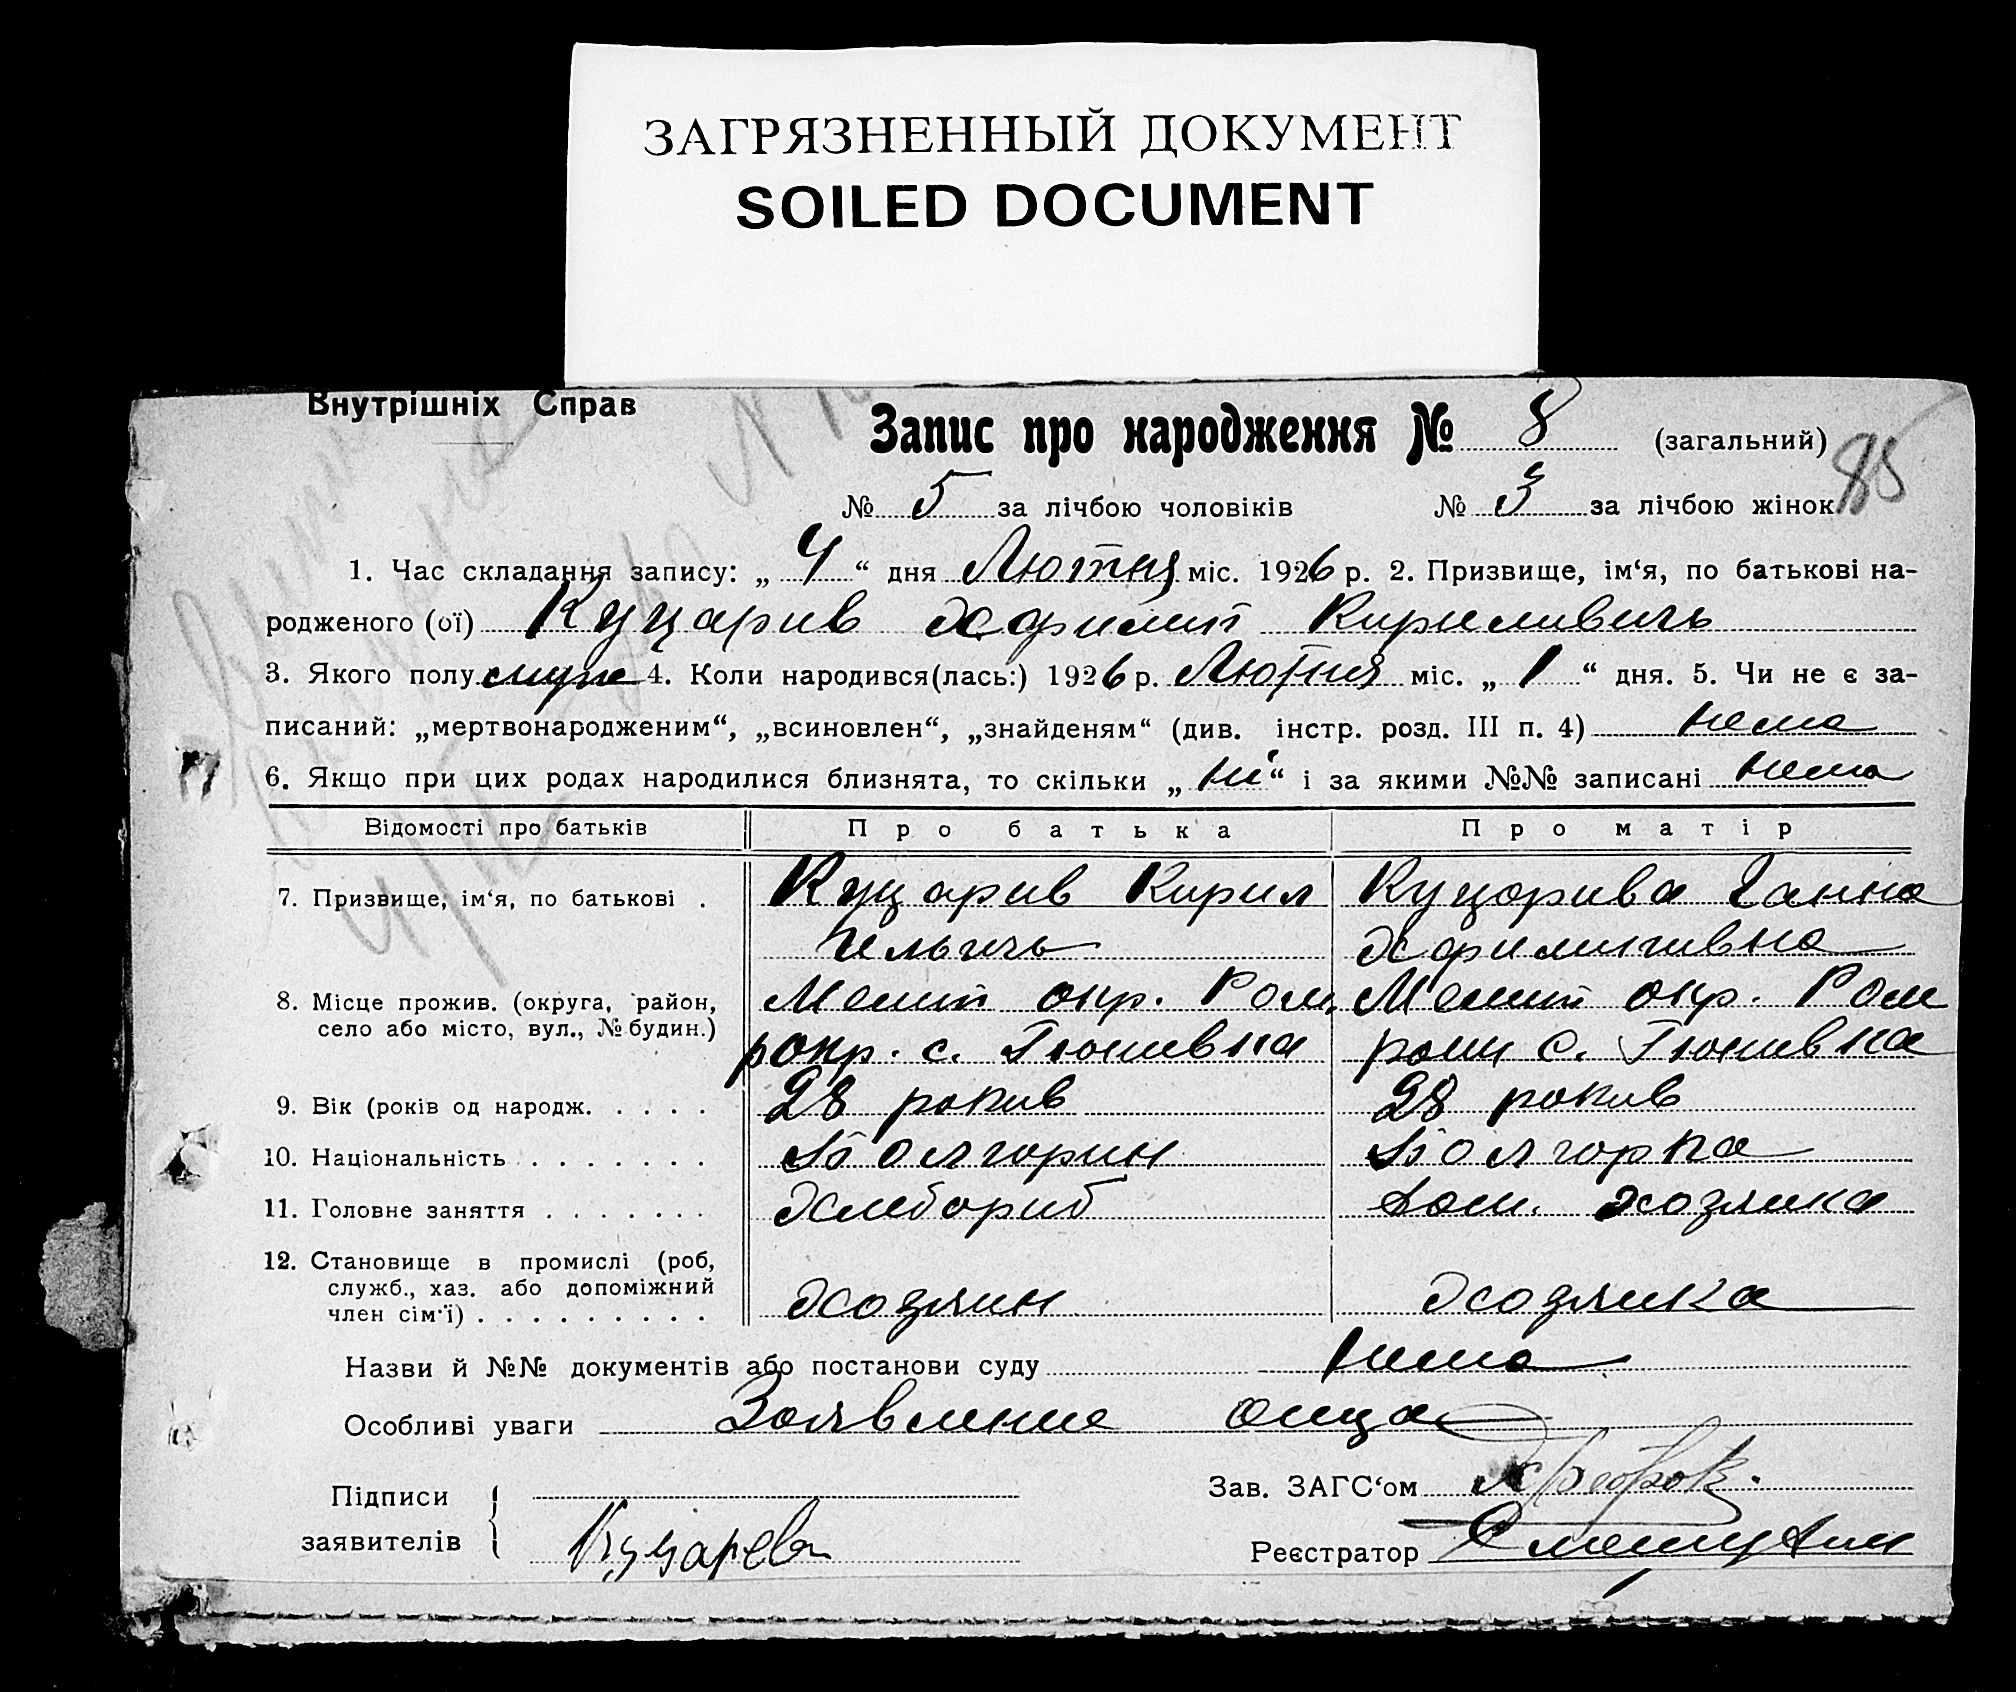 ЗАГРЯЗНЕННЫЙ ДОКУМЕНТ
SOILED DOCUMENT
Внутрішніх Справ
Запис про народження № 8 (загальний)
85
№ 5 за лічбою чоловіків № 3 за лічбою жінок
1. Час складання запису: „ 4 “ дня Лютня міс. 1926 р. 2. Призвище, ім‘я, по батькові на-
родженого (ої) Куцарив Хфилип Кириливичь
3. Якого полу муж 4. Коли народився(лась:) 1926 р. Лютня міс. „ 1 “ дня. 5. Чи не є за-
писаний: „мертвонародженим“, „всиновлен“, „знайденям“ (див. інстр. розд. III п. 4) нема
6. Якщо при цих родах народилися близнята, то скільки „ ні “ і за якими №№ записані нема
Відомості про батьків Про батька Про матір
7. Призвище, ім‘я, по батькові . Куцарив Кирил Куцарива Ганна
Ильичь Хфилипивна
8. Місце прожив. (округа, район, Мелит окр. Ром. Мелит окр. Ром
село або місто, вул., № будин.) с. Гюнивка с. Гюнивка
9. Вік (років од народж. . . . . 28 рокив 28 рокив
10. Національність . . . . . . . Болгорин Болгорка
11. Головне заняття . . . . . . . Хлибориб Дом. хозяика
12. Становище в промислі (роб,
служб., хаз. або допоміжний
член сім‘ї) . . . . . . . . . Хозяин Хозяика
Назви й №№ документів або постанови суду нема
Особливі уваги Заявление отца
Підписи Зав. ЗАГС‘ом
заявителів Куцарев Реєстратор